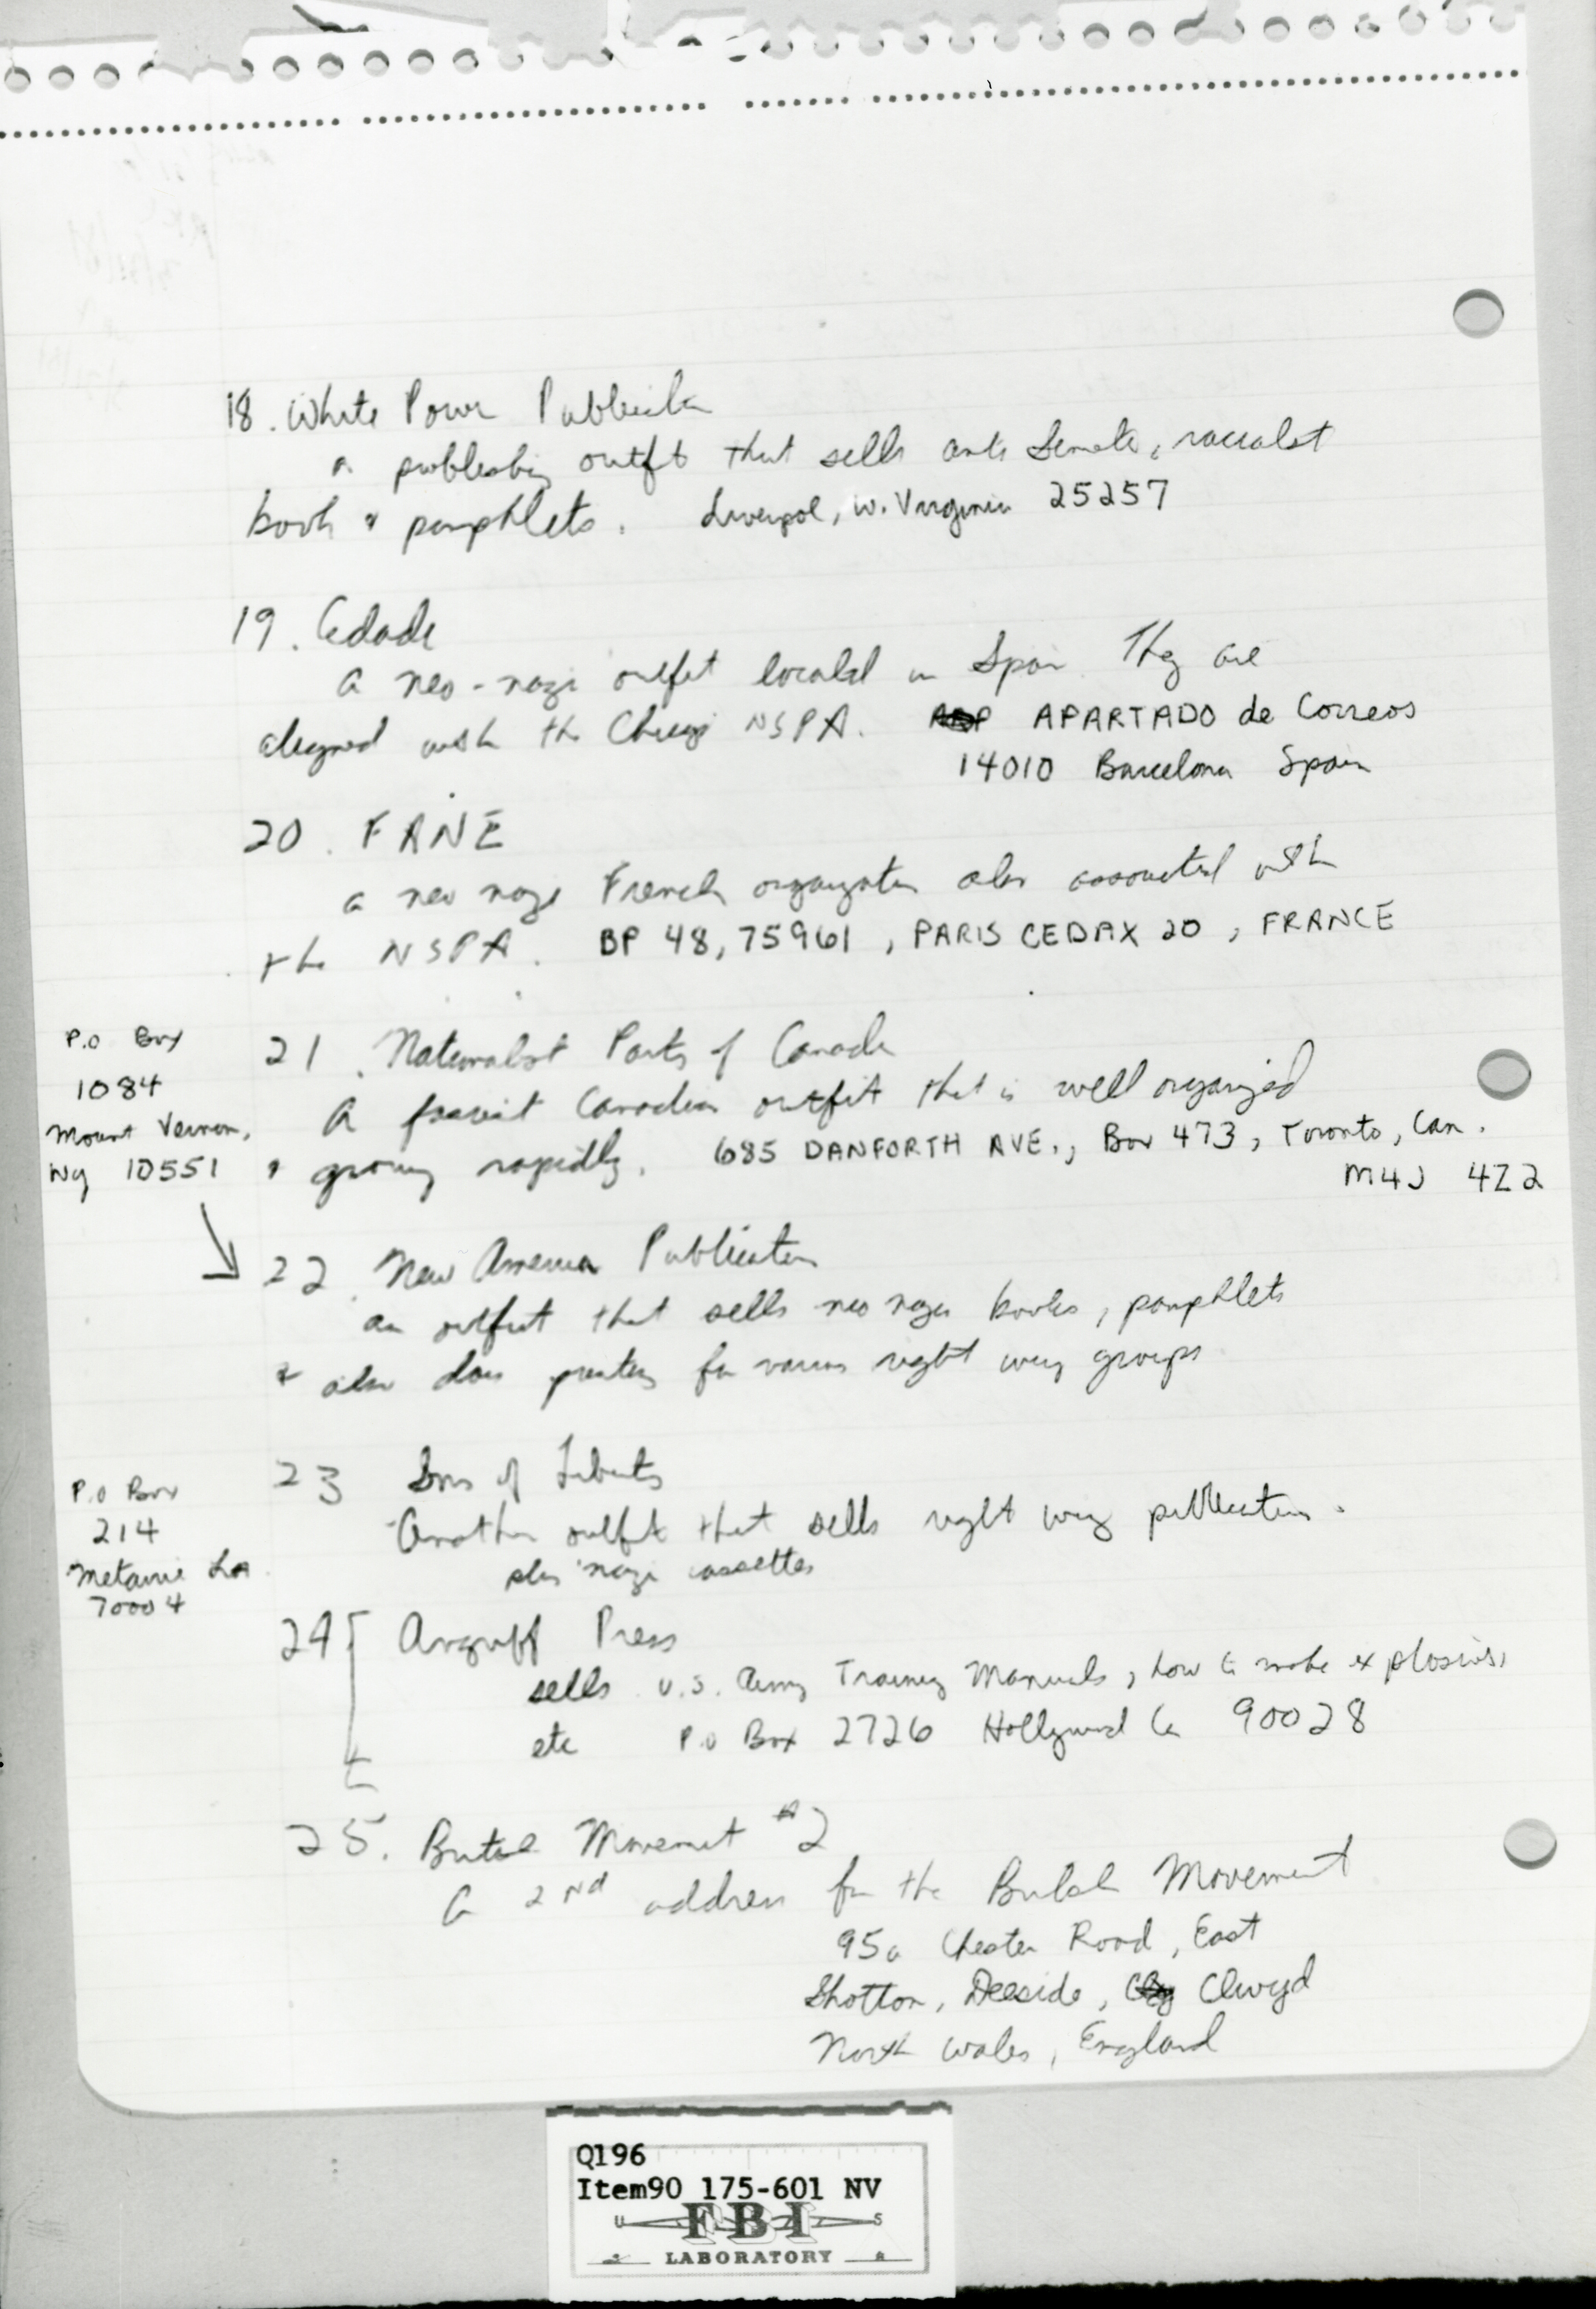 18. White Power Publication
a publishing outfit that sells anti Semitic, racialist
books & pamphlets. Liverpol, W. Virginia 25257
19. Cedade
a neo-nazi outfit located in Spain They are
aligned with the Chicago NSPA. APARTADO de Correos
14010 Barcelona Spain
20. FANE
a neo nazi French organization also associated with
the NSPA. BP 48, 75961, PARIS CEDAX 20, FRANCE
P.O Box
1084
Mount Vernon,
NY 10551
21. Nationalist Party of Canada
A fascist Canadian outfit that is well organized
& growing rapidly. 685 DANFORTH AVE., Box 473, Toronto, Can.
M4J 4Z2
22. New America Publication
an outfit that sells neo nazi books, pamphlets
& also does printing for various right wing groups
P.O Box
214
Metairie La
70004
23 Sons of Liberty
Another outfit that sells right wing publications.
plus nazi cassettes
24 Press
sells U.S. Army Training Manuals, how to make explosives,
etc P.O Box 2726 Hollywood Ca 90028
25. British Movement #2
A 2nd address for the British Movement
95a Chester Road, East
Shotton, Deeside, Clwyd
North Wales, England
Q196
Item90 175-601 NV
U S
FBI
LABORATORY